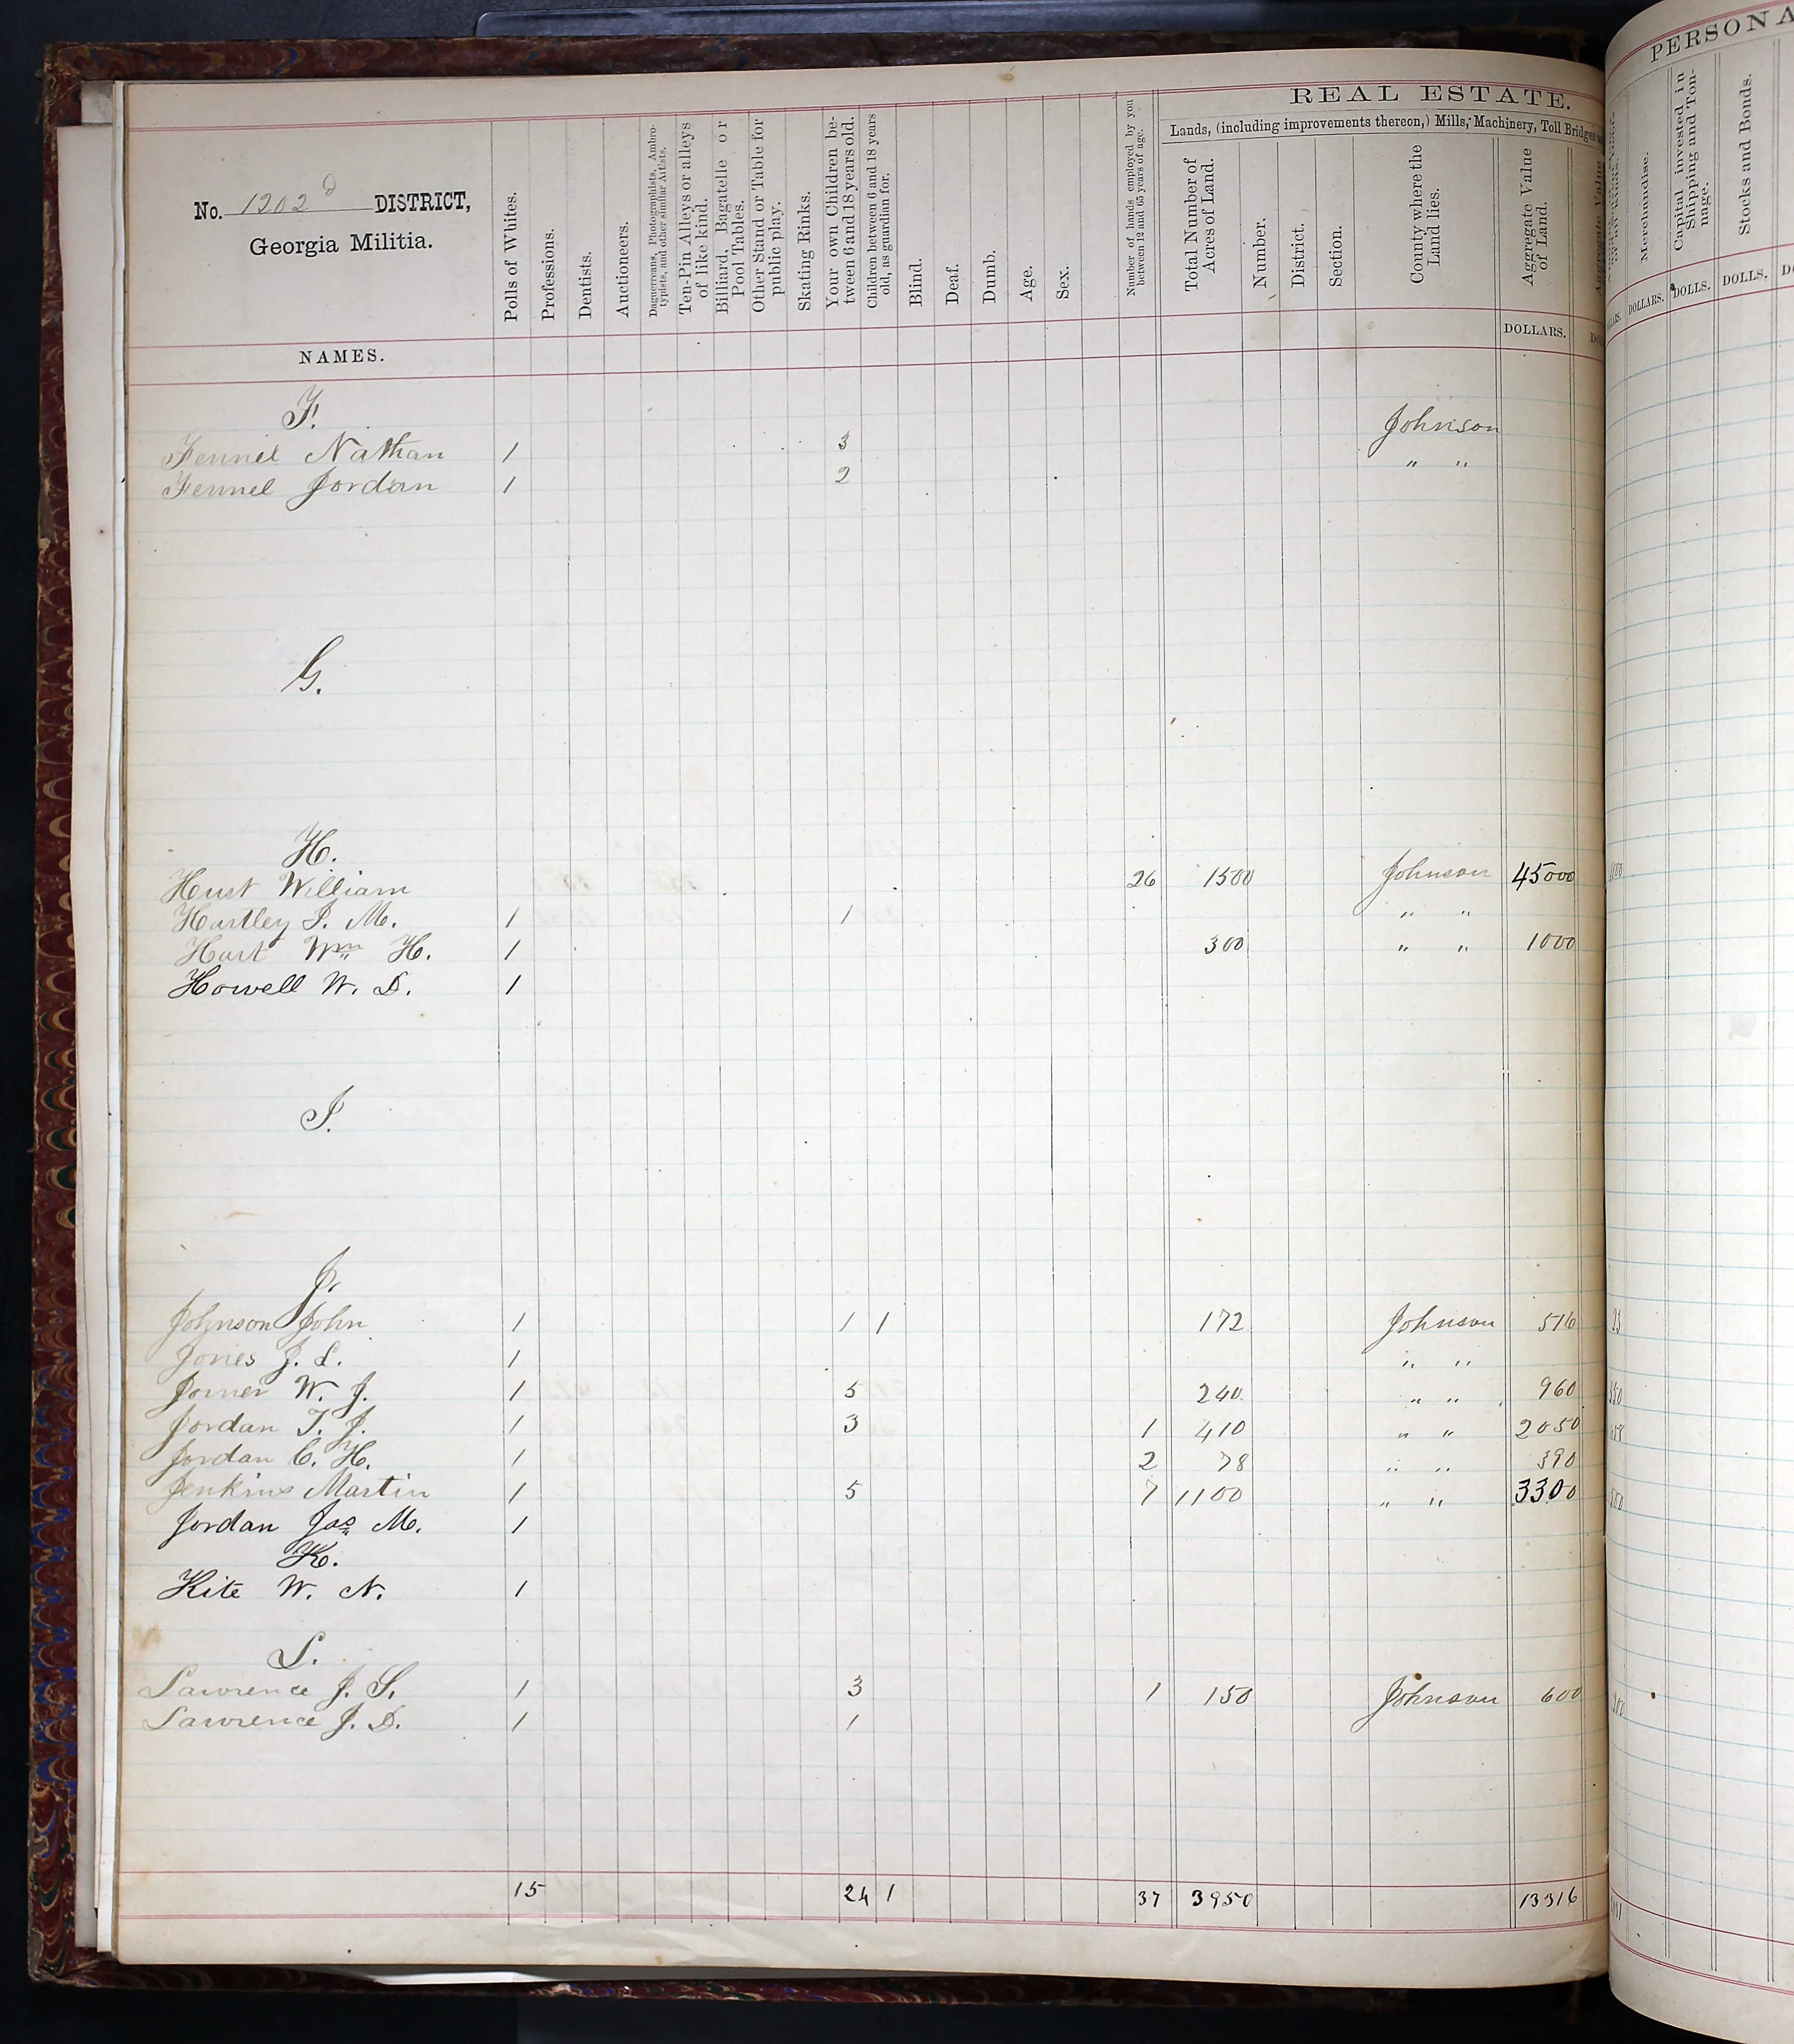 REAL ESTATE.
Lands, (including improvements thereon,) Mills, Machinery, Toll Bridges
No. 1202d DISTRICT,
Georgia Militia.
NAMES.
Polls of Whites.
Professions.
Dentists.
Auctioneers.
Daguerreans, Photographists, Ambro-
typists, and other similar Artists.
Ten-Pin Alleys or alleys
of like kind.
Billiard, Bagatelle or
Pool Tables.
Other Stand or Table for
public play.
Skating Rinks.
Your own Children be-
tween 6 and 18 years old.
Children between 6 and 18 years
old, as guardian for.
Blind.
Deaf.
Dumb.
Age.
Sex.
Number of hands employed by you
between 12 and 65 years of age.
Total Number of
Acres of Land.
Number.
District.
Section.
County where the
Land lies.
Aggregate Value
of Land.
DOLLARS.
F.
Fennel Nathan 1 3 Johnson
Fennel Jordan 1 2 " "
G.
H.
Hust William 26 1500 Johnson 45000
Hartley J. M. 1 1 " "
Hart Wm H. 1 300 " " 1000
Howell W. D. 1
I.
J.
Johnson John 1 1 1 172 Johnson 516
Jones J. L. 1 " "
Joiner W. J. 1 5 240 " " 960
Jordan T. J. 1 3 1 410 " " 2050
Jordan C. H. 1 2 78 " " 390
Jenkins Martin 1 5 7 1100 " " 3300
Jordan Jas M. 1
K.
Kite W. N. 1
L.
Lawrence J. S. 1 3 1 150 Johnson 600
Lawrence J. D. 1 1
15 24 1 37 3950 13316
PERSONA
Merchandise.
Capital invested in
Shipping and Ton-
nage.
Stocks and Bonds.
DOLLARS. DOLLS. DOLLS.